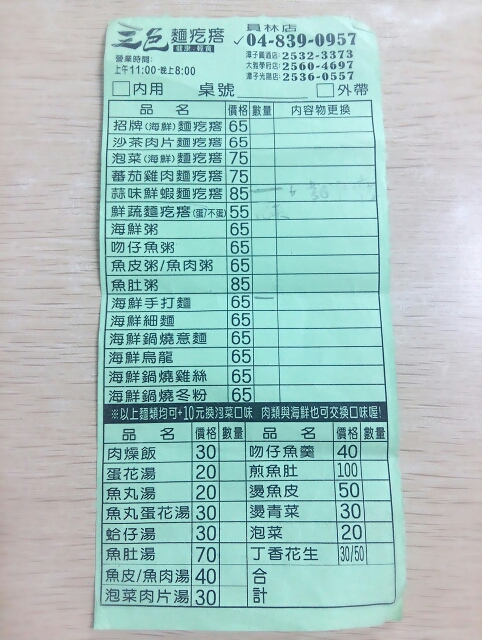 三色 麵疙瘩 員林店
健康.輕食 ✓04-839-0957
營業時間: 潭子圓通店:2532-3373
上午11:00-晚上8:00 大雅學府店:2560-4697
潭子光陽店:2536-0557
□內用 桌號 □外帶
品名 價格 數量 內容物更換
招牌(海鮮)麵疙瘩 65
沙茶肉片麵疙瘩 65
泡菜(海鮮)麵疙瘩 75
蕃茄雞肉麵疙瘩 75
蒜味鮮蝦麵疙瘩 85 一
鮮蔬麵疙瘩(蛋?不蛋) 55
海鮮粥 65
吻仔魚粥 65
魚皮粥/魚肉粥 65
魚肚粥 85
海鮮手打麵 65 一
海鮮細麵 65
海鮮鍋燒意麵 65
海鮮烏龍 65
海鮮鍋燒雞絲 65
海鮮鍋燒冬粉 65
※以上麵類均可+10元換泡菜口味 肉類與海鮮也可交換口味喔!
品名 價格 數量 品名 價格 數量
肉燥飯 30 吻仔魚羹 40
蛋花湯 20 煎魚肚 100
魚丸湯 20 燙魚皮 50
魚丸蛋花湯 30 燙青菜 30
蛤仔湯 30 泡菜 20
魚肚湯 70 丁香花生 30/50
魚皮/魚肉湯 40 合
泡菜肉片湯 30 計